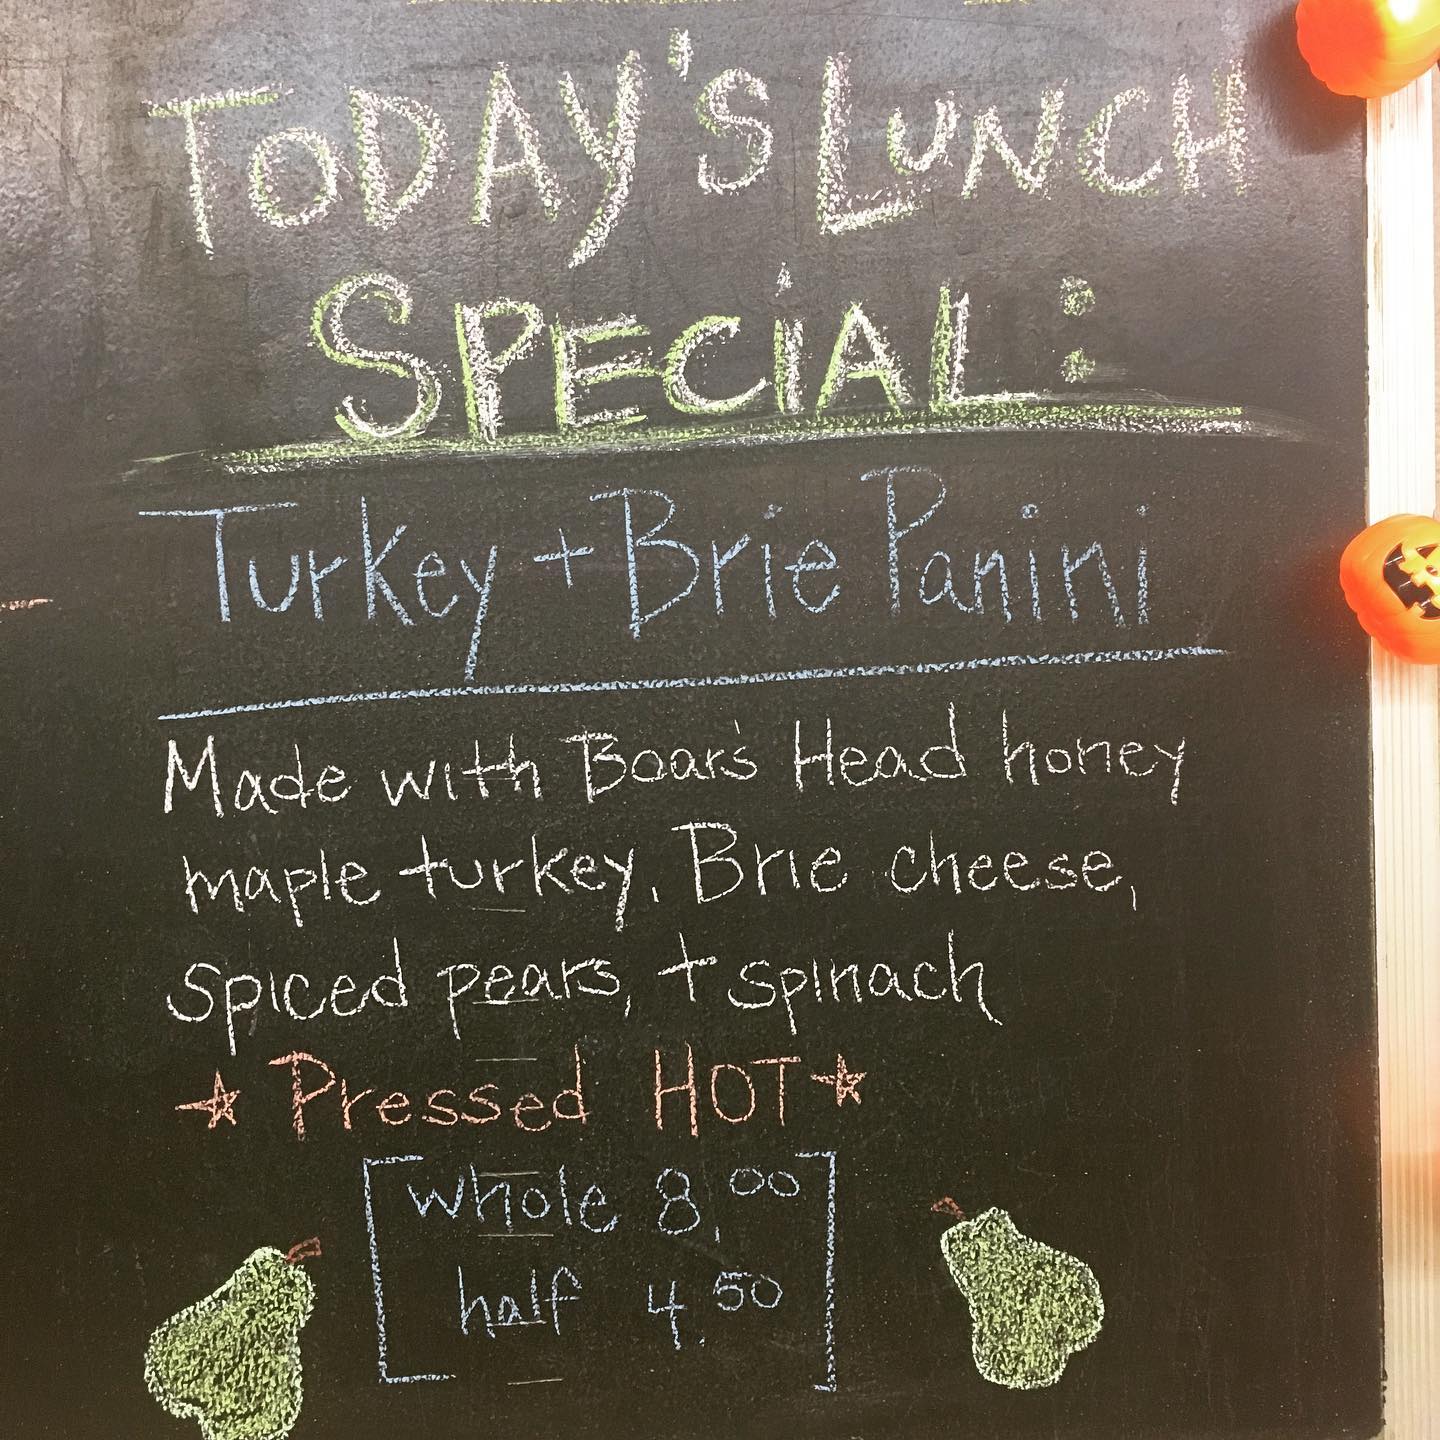 TODAY'S LUNCH
SPECIAL:
Turkey + Brie Panini
Made with Boar's Head honey
maple turkey, Brie cheese,
spiced pears, + spinach
☆ Pressed HOT ☆
whole 8.00
half 4.50